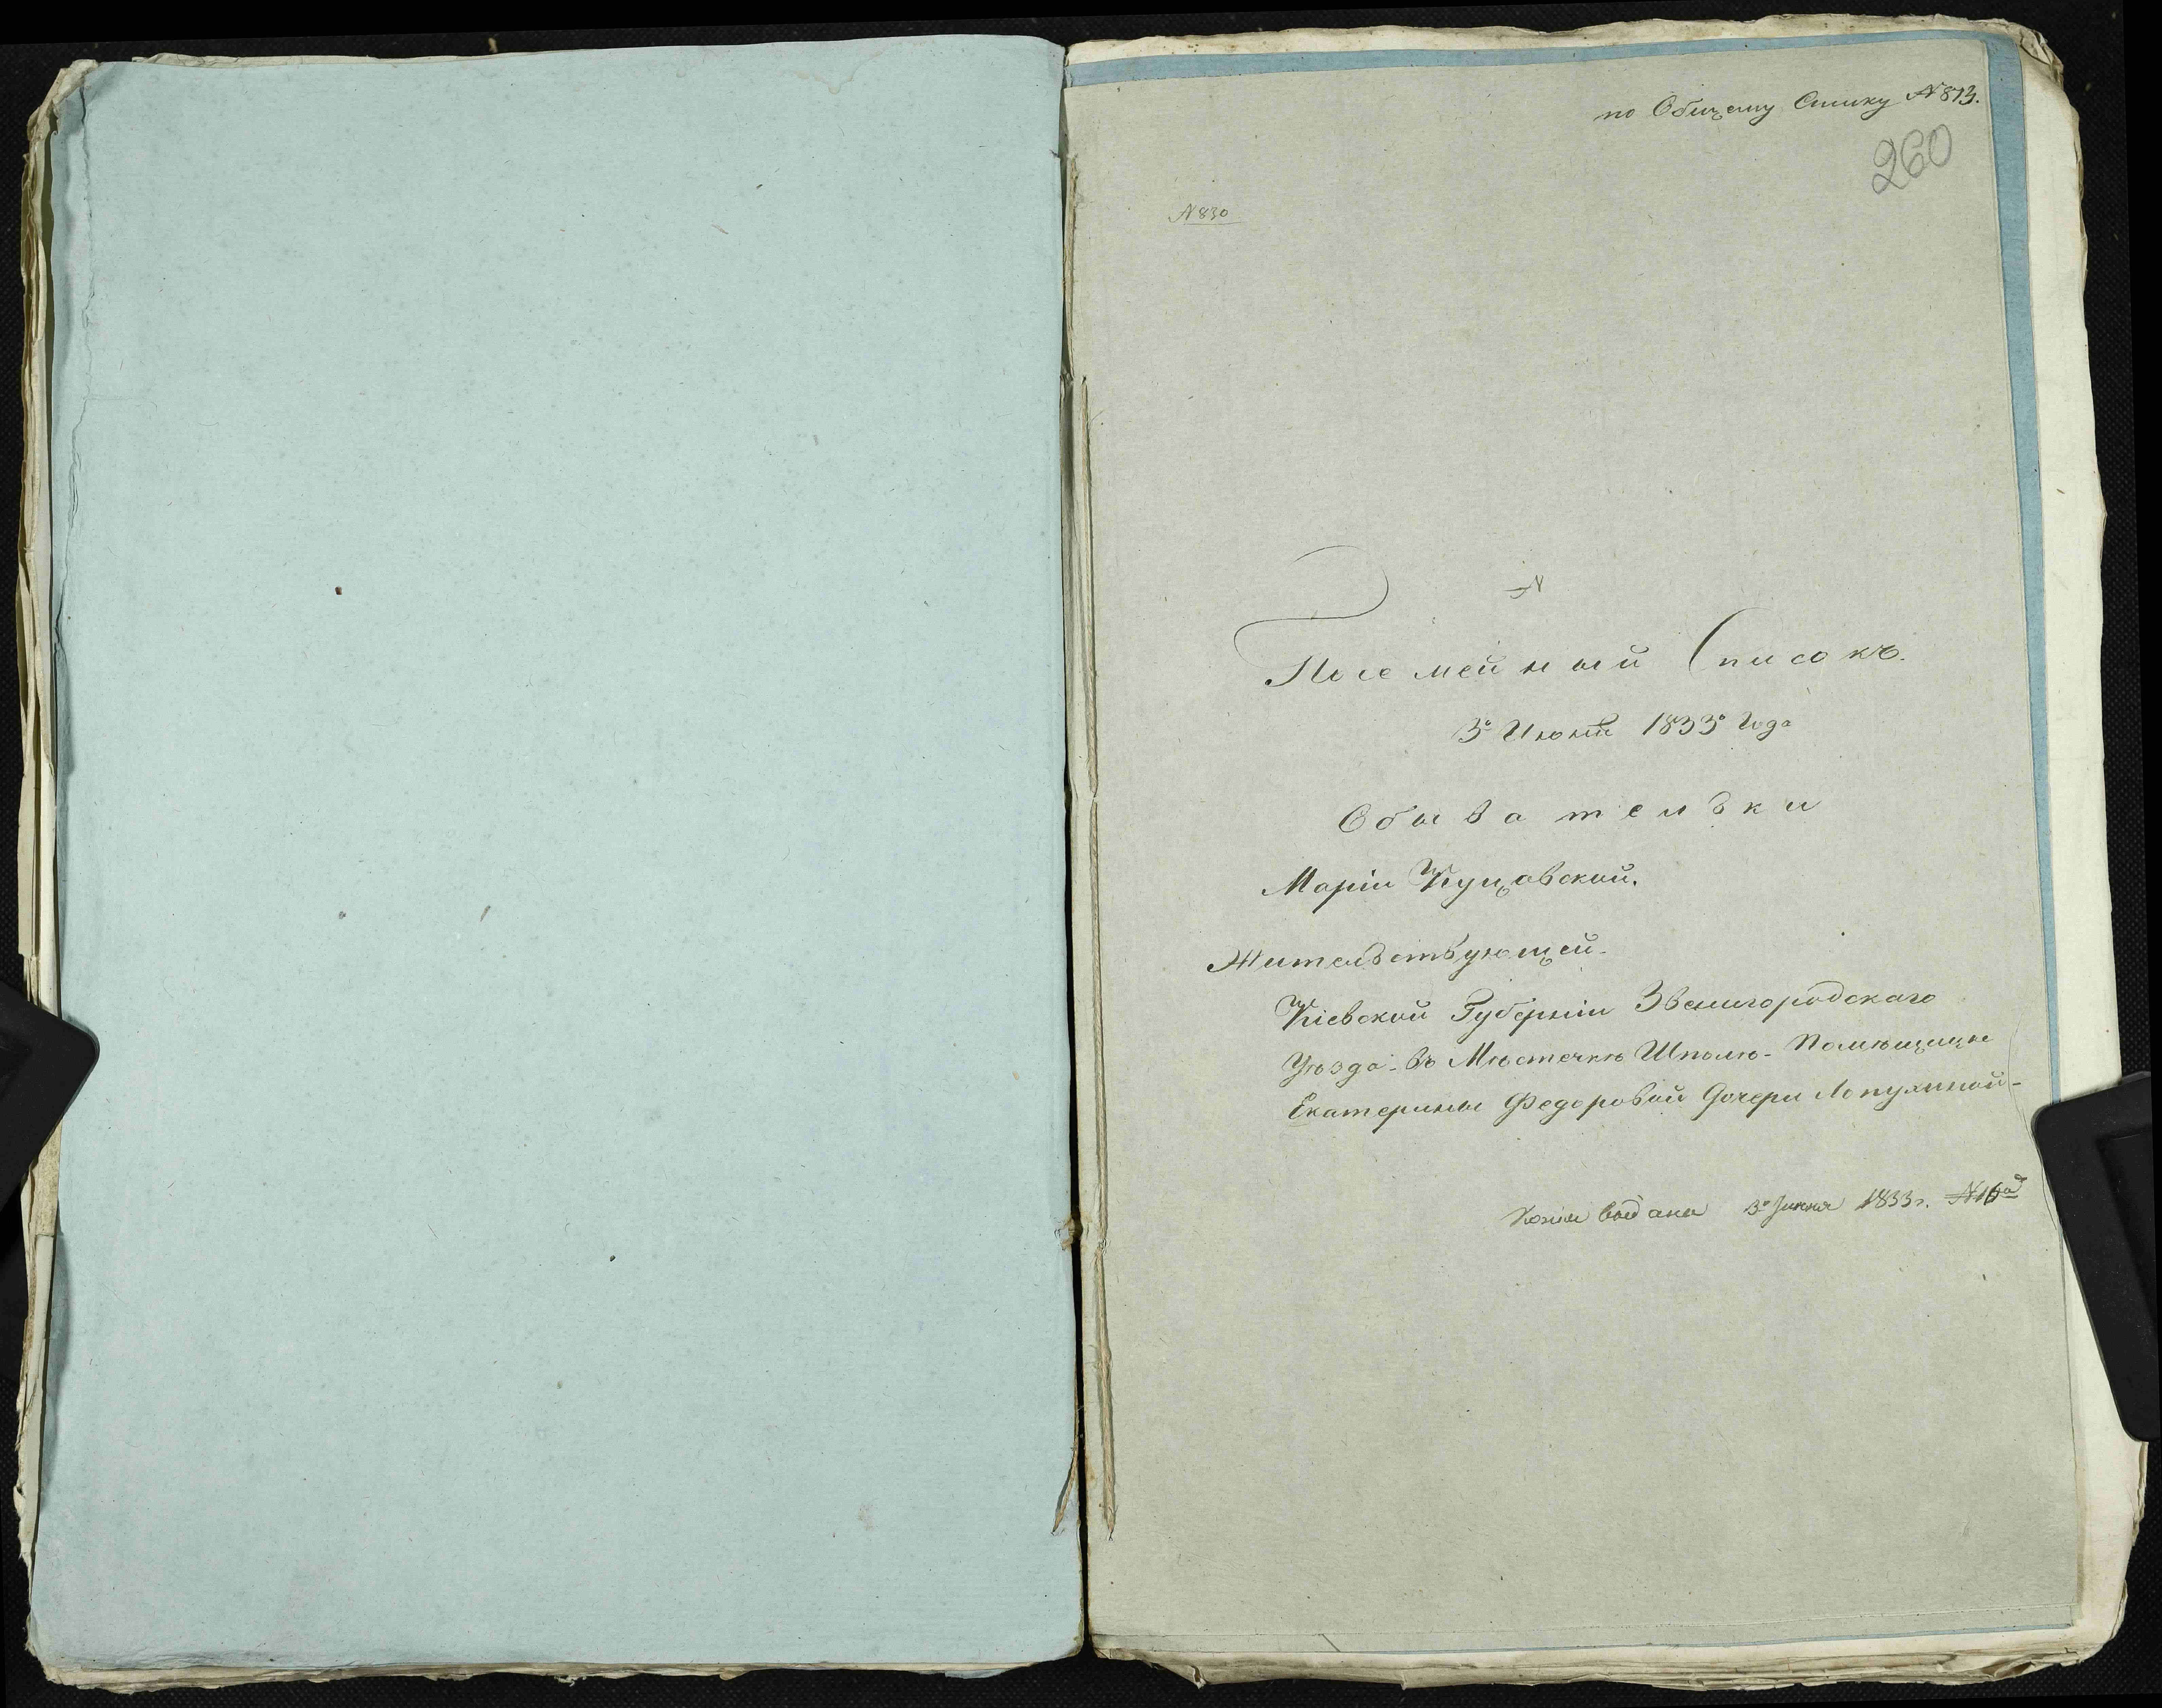 по Общему Списку № 873.
260
№ 830
№
Посемейный Списокъ.
3º Июня 1833º Года
Обывательки
Маріи Куцовской.
Жительствующей.
Кіевской Губерніи Звенигородскаго
Уѣзда - въ Мѣстечкѣ Шполѣ - Помѣщицы
Екатерины Федоровой Дочери Лопухиной -
Копія выдана 3º Іюня 1833 г.